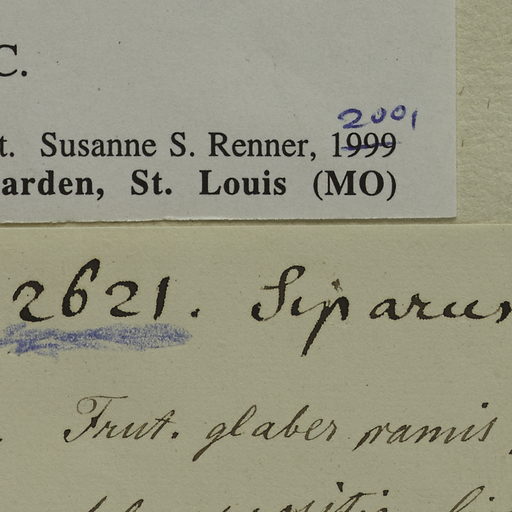 C.
2001
t. Susanne S. Renner, 1999
arden, St. Louis (MO)
2621. Siparun
Frut. glaber ramis